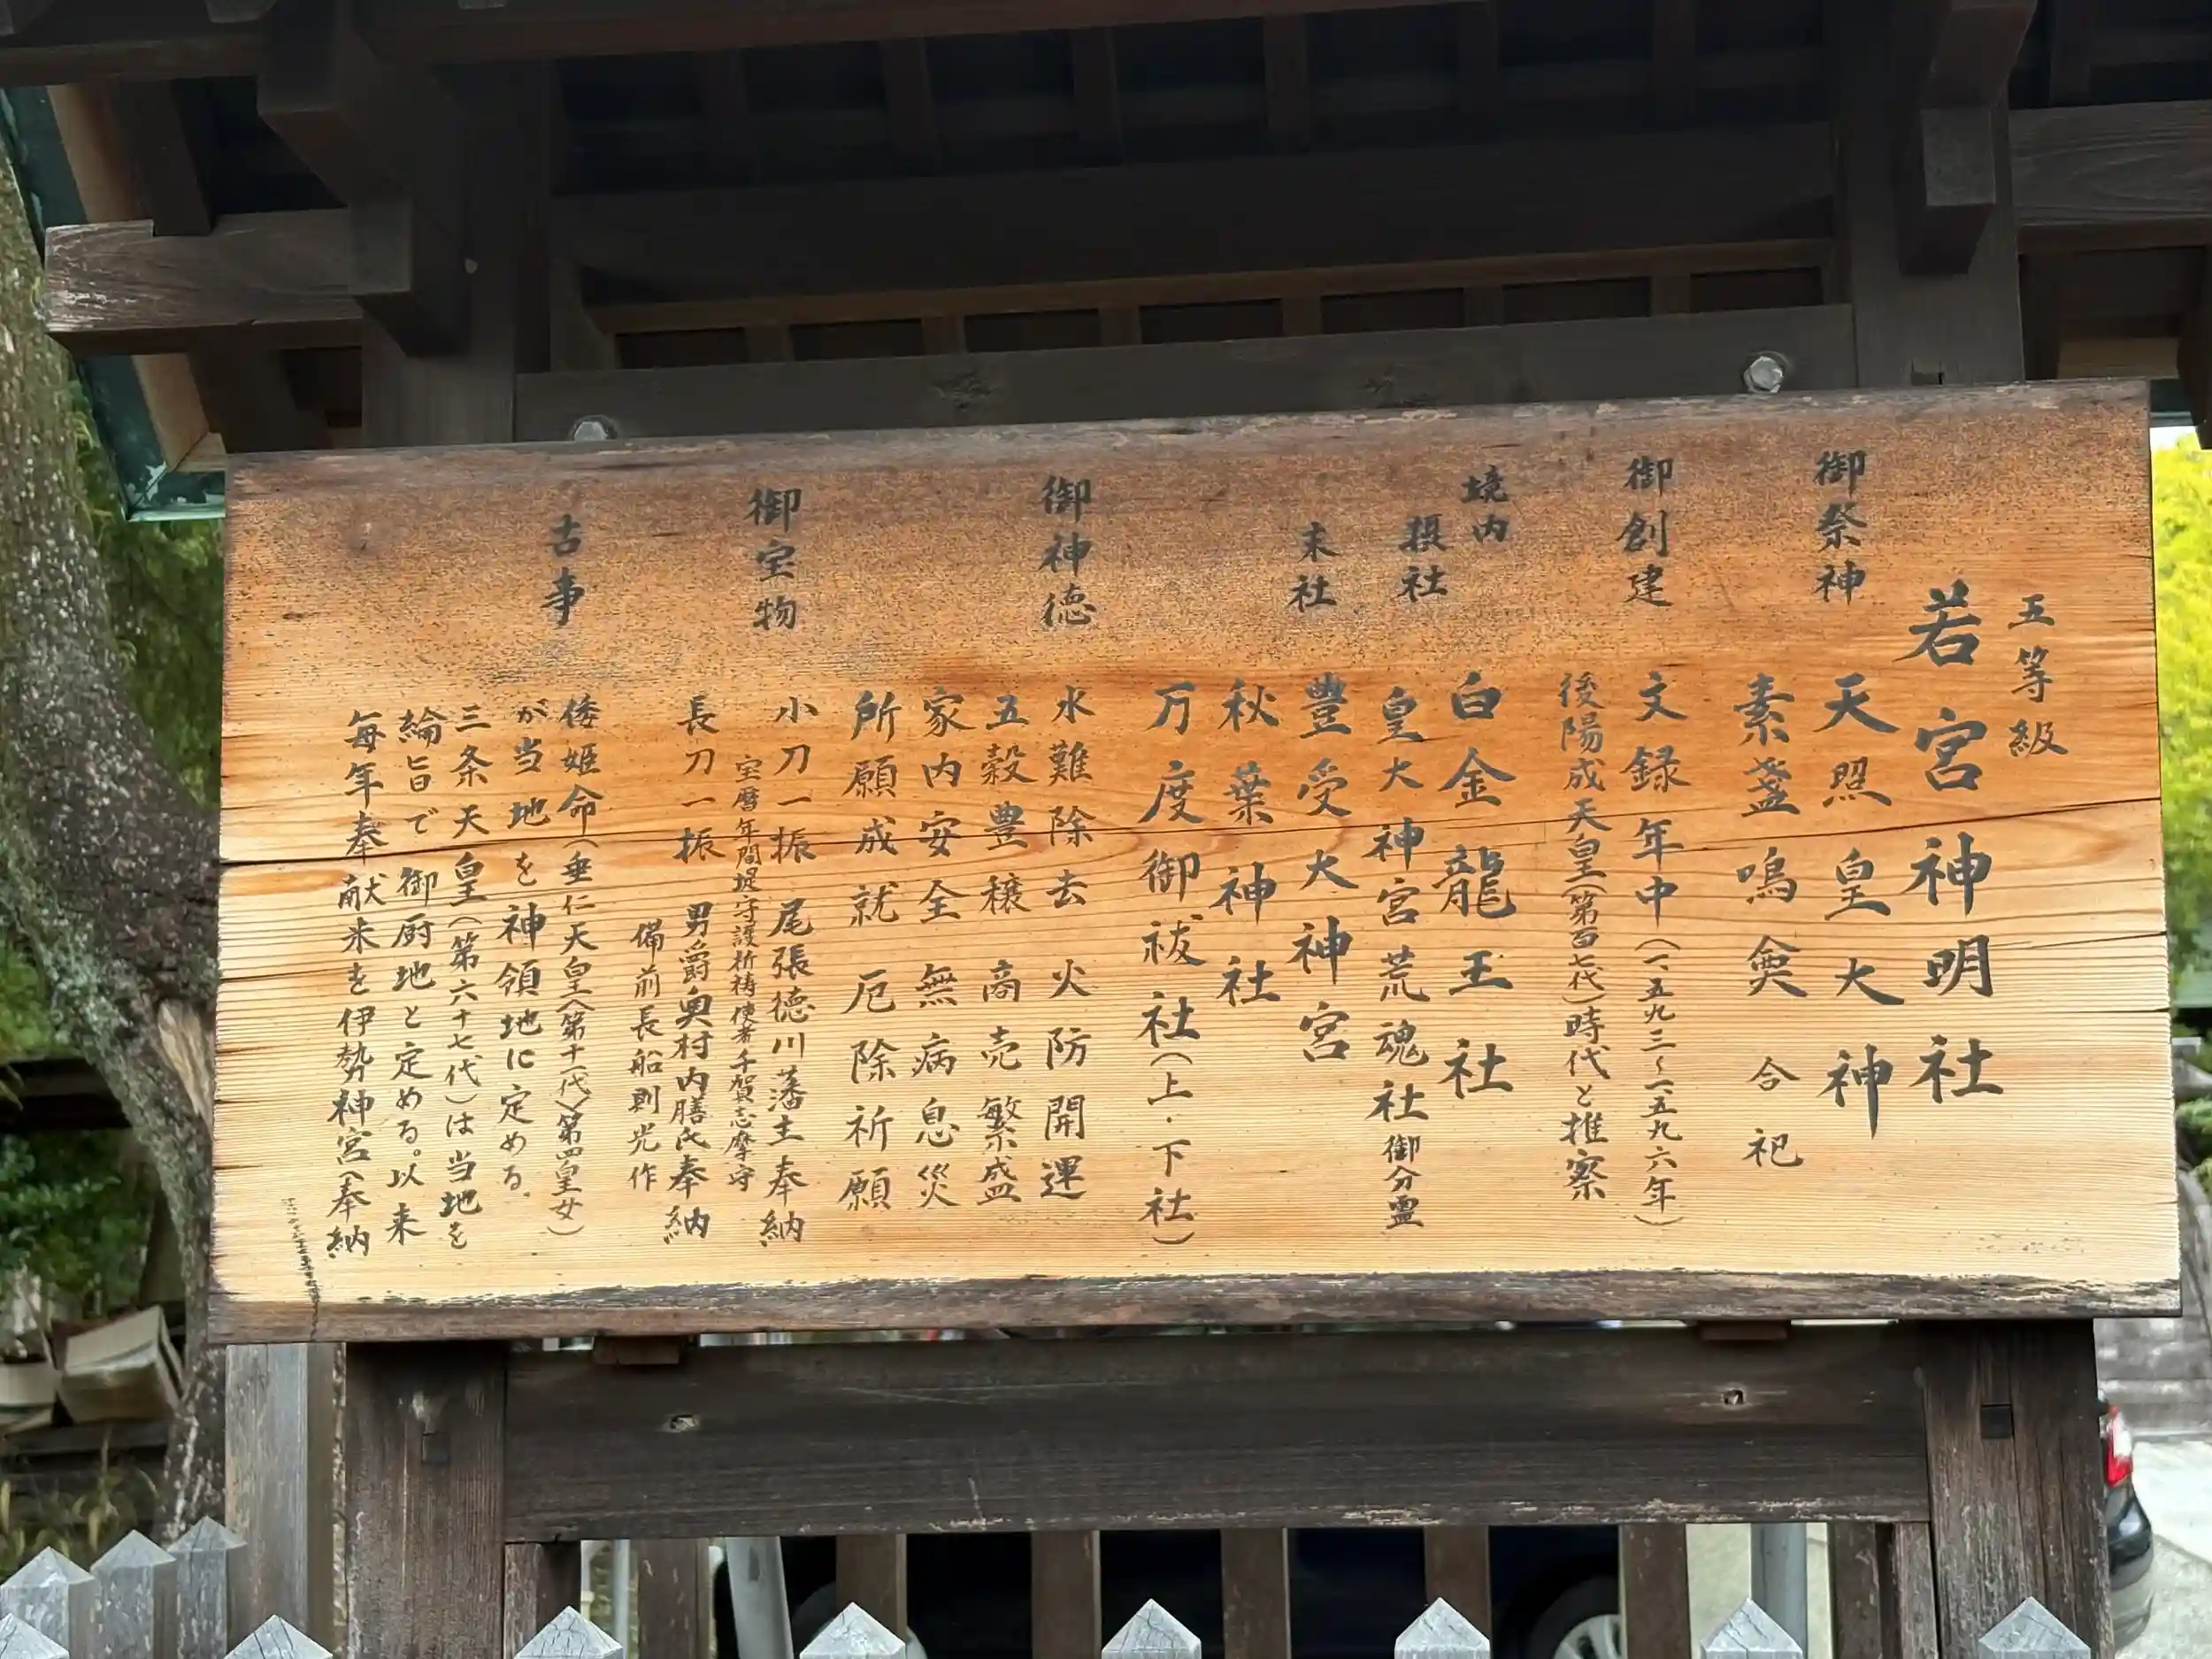 五等級
若宮神明社
御祭神
天照皇大神
素盞嗚尊 合祀
御創建
文録年中(一五九三〜一五九六年)
後陽成天皇(第百七代)時代と推察
境内
白金龍王社
摂社
皇大神宮荒魂社御分霊
末社
豊受大神宮
秋葉神社
万度御祓社(上・下社)
御神徳
水難除去 火防開運
五穀豊穣 商売繁盛
家内安全 無病息災
所願成就 厄除祈願
御宝物
小刀一振 尾張徳川藩主奉納
宝暦年間堤守護祈祷使者千賀志摩守
長刀一振 男爵奥村内膳氏奉納
備前長船則光作
古事
倭姫命(垂仁天皇〈第十一代〉第四皇女)
が当地を神領地に定める。
三条天皇(第六十七代)は当地を
綸旨で御厨地と定める。以来
毎年奉献米を伊勢神宮へ奉納